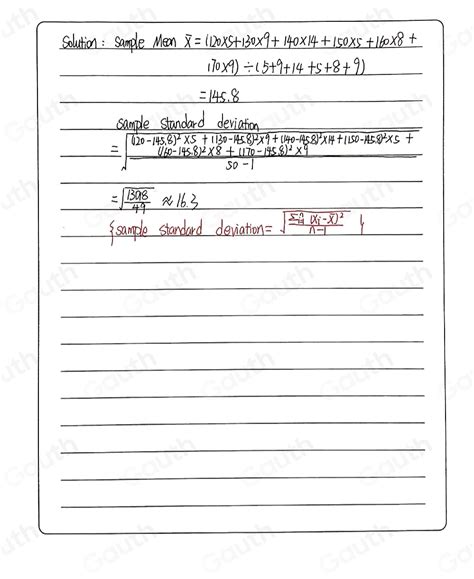 Solution: Sample Mean x̄ = (120×5+130×9+140×14+150×5+160×8+
170×9) ÷ (5+9+14+5+8+9)
=145.8
sample standard deviation
= √((120-145.8)²×5 + (130-145.8)²×9 + (140-145.8)²×14 + (150-145.8)²×5 +
(160-145.8)²×8 + (170-145.8)²×9
50-1
= √(13018/49) ≈ 16.3
{sample standard deviation = √(Σ(xᵢ-x̄)²/n-1) }
Gauth